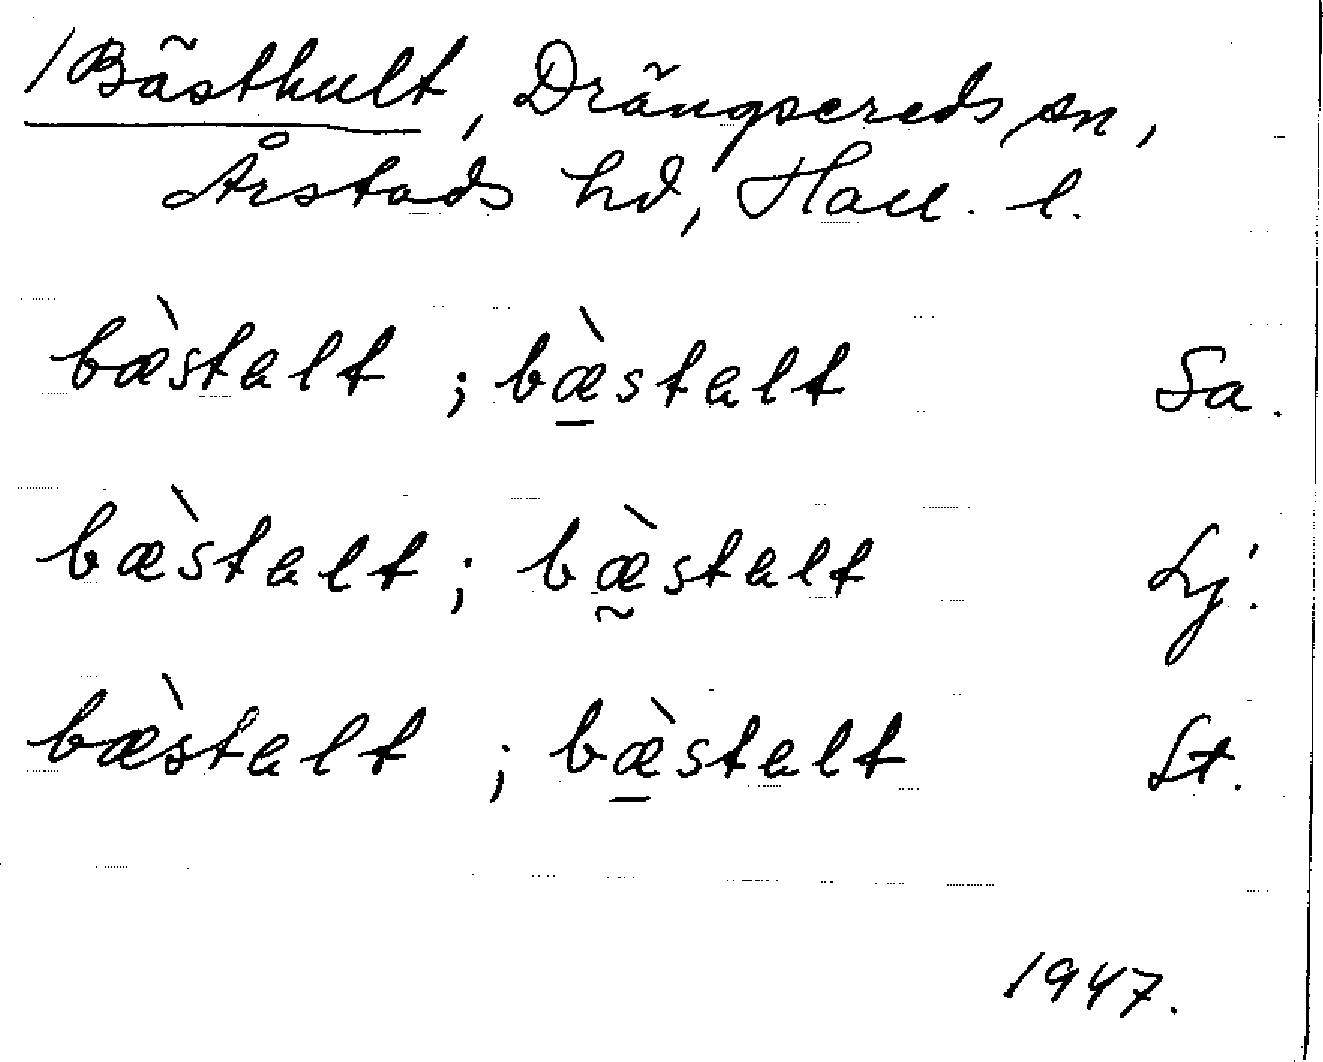 /Bästhult, Drängsereds sn,
Årstads hd, Hall. l.
bæ̀stalt ; bæ̠̀stalt Sa.
bæ̀stalt ; bæ̰̀stalt Lj.
bæ̀stalt ; bæ̠̀stalt St.
1947.